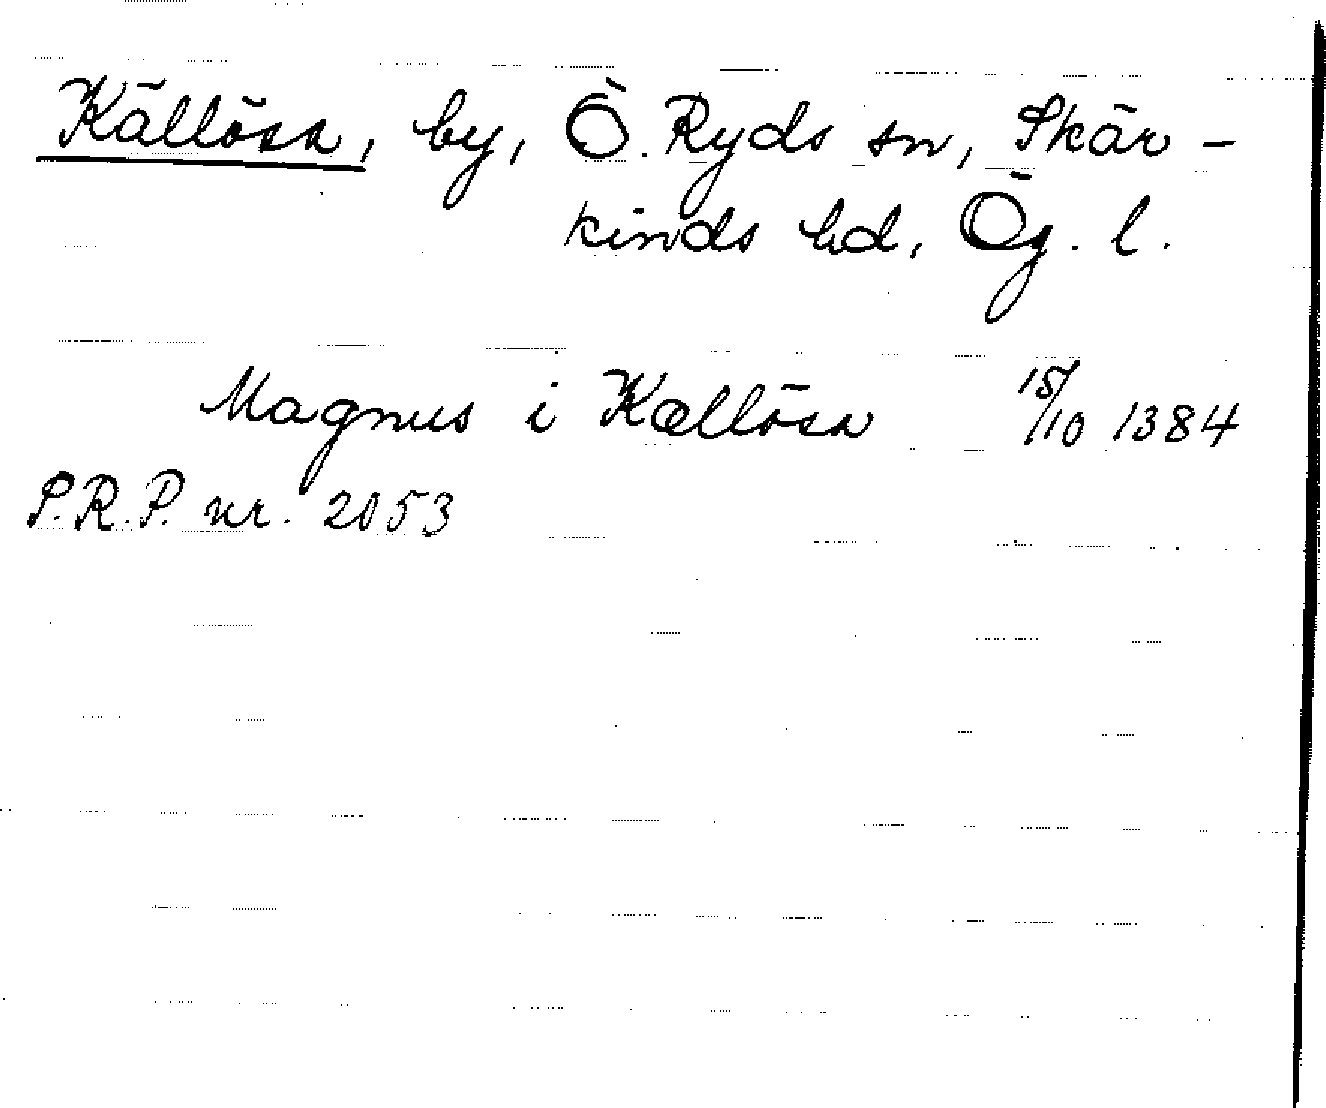 Källösa, by, Ö. Ryds sn, Skär-
kinds hd, Ög. l.
Magnus i Kællösa 15/10 1384
P.R.P. nr. 2053